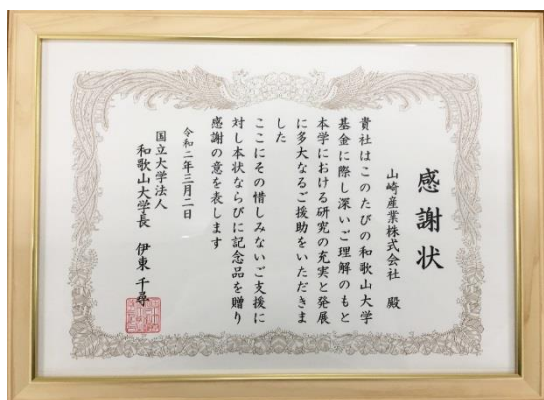 感謝状
山崎産業株式会社 殿
貴社はこのたびの和歌山大学
基金に際し深いご理解のもと
本学における研究の充実と発展
に多大なるご援助をいただきま
した
ここにその惜しみないご支援に
対し本状ならびに記念品を贈り
感謝の意を表します
令和二年三月二日
国立大学法人
和歌山大学長 伊東 千尋